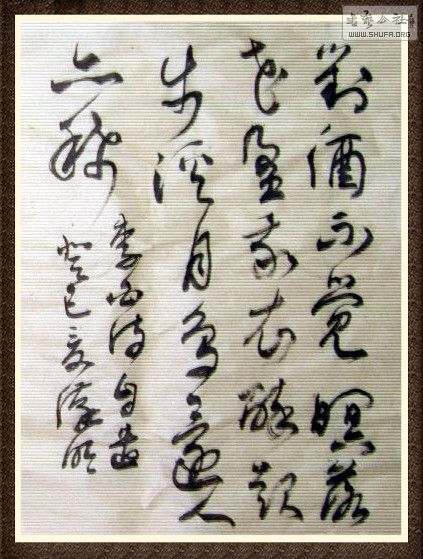 書藝公社
WWW.SHUFA.ORG
對酒不覺暝落
花盈我衣醉起
步溪月鳥還人
亦稀
李白诗自遣
癸巳夏